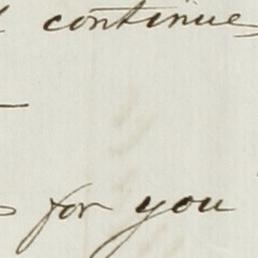 continue
for you